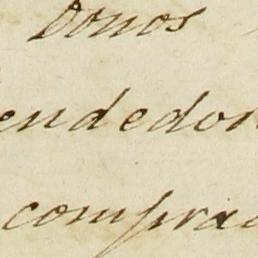 Donos
endedor
comprad